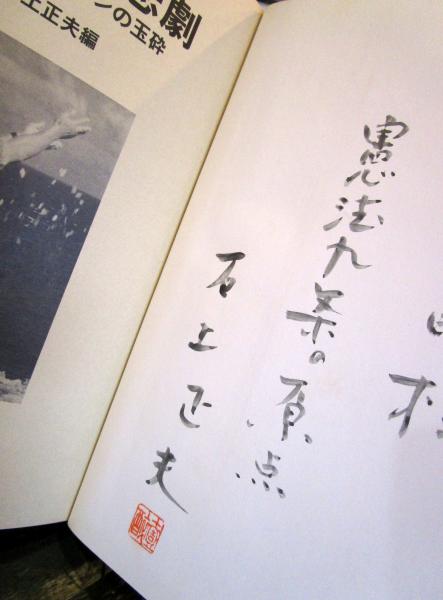 悲劇
ンの玉砕
上正夫編
憲法九条の原点
石上正夫